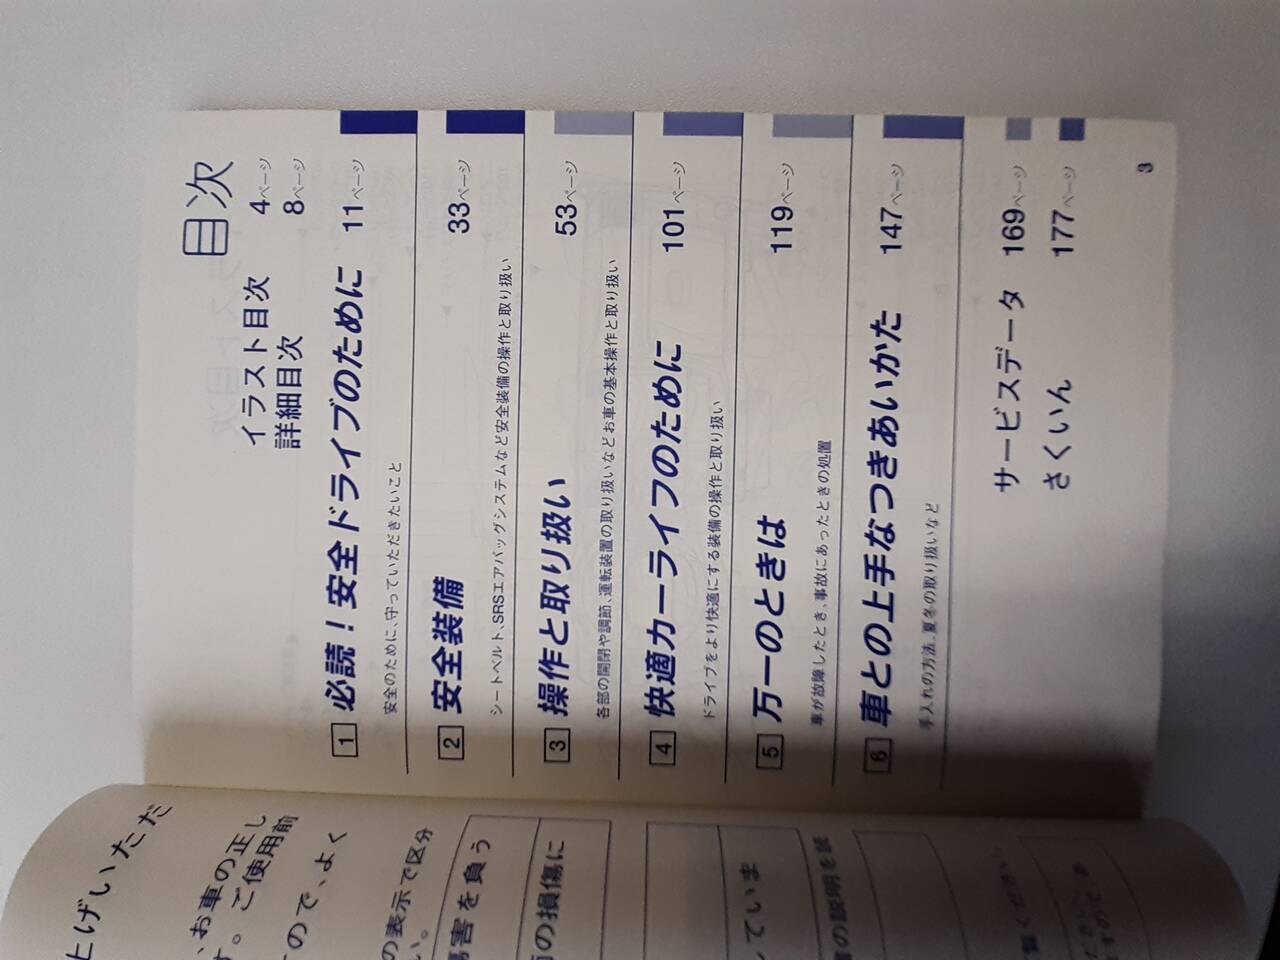 目次
イラスト目次 4ページ
詳細目次 8ページ
1 必読！安全ドライブのために 11ページ
安全のために、守っていただきたいこと
2 安全装備 33ページ
シートベルト、SRSエアバッグシステムなど安全装備の操作と取り扱い
3 操作と取り扱い 53ページ
各部の開閉や調節、運転装置の取り扱いなどお車の基本操作と取り扱い
4 快適カーライフのために 101ページ
ドライブをより快適にする装備の操作と取り扱い
5 万一のときは 119ページ
車が故障したとき、事故にあったときの処置
6 車との上手なつきあいかた 147ページ
手入れの方法、夏冬の取り扱いなど
サービスデータ 169ページ
さくいん 177ページ
3
上げいただ
、お車の正し
す。ご使用前
ので、よく
の表示で区分
い。
傷害を負う
の損傷に
ていま
の説明を
ください。